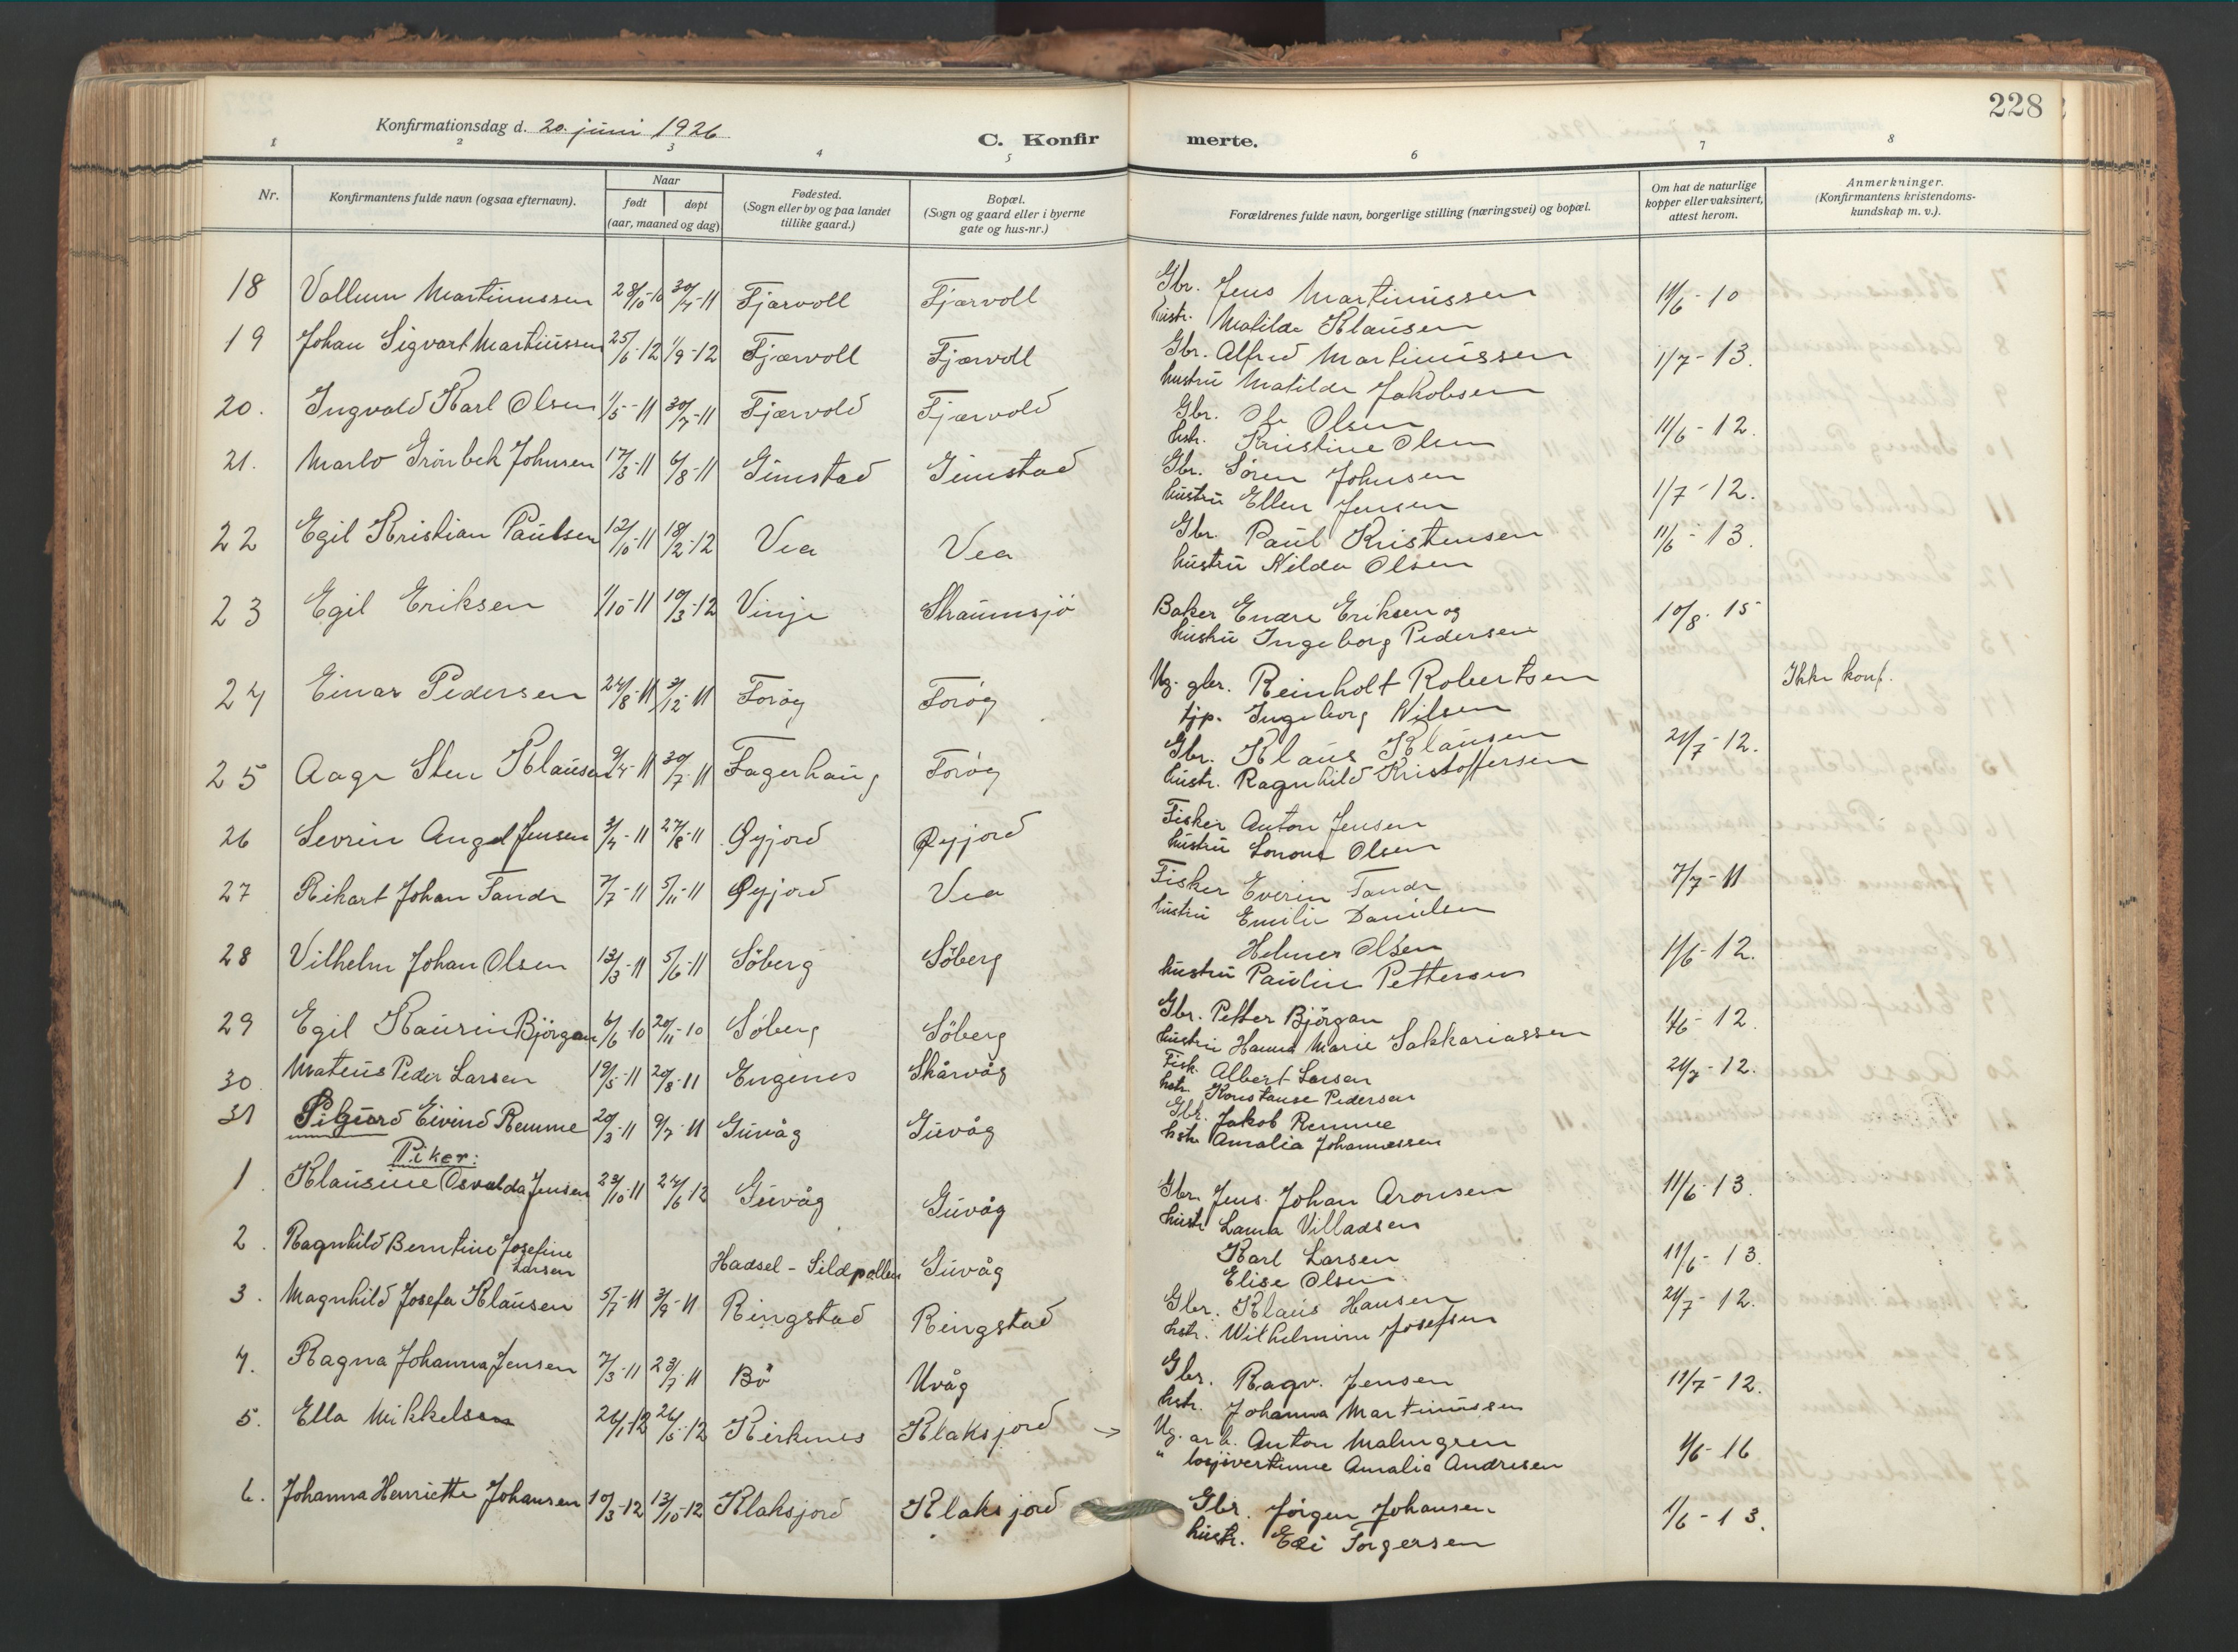 228
Konfirmationsdag d. 20. juni 1926
C. Konfirmerte.
1 2 3 4 5 6 7 8
Nr.
Konfirmantens fulde navn (ogsaa efternavn).
Naar
født døpt
(aar, maaned og dag)
Fødested.
(Sogn eller by og paa landet
tillike gaard.)
Bopæl.
(Sogn og gaard eller i byerne
gate og hus-nr.)
Forældrenes fulde navn, borgerlige stilling (næringsvei) og bopæl.
Om hat de naturlige
kopper eller vaksinert,
attest herom.
Anmerkninger.
(Konfirmantens kristendoms-
kundskap m. v.).
18 Vollum Martinussen 28/10-10 30/7-11 Fjærvoll Fjærvoll Gbr. Jens Martinussen 11/6-10
hustr. Matilde Klausen
19 Johan Sigvart Martinussen 25/6-12 1/9-12 Fjærvoll Fjærvoll Gbr. Alfred Martinussen 1/7-13.
hustru Matilde Jakobsen
20. Ingvald Karl Olsen 1/5-11 30/7-11 Fjærvold Fjærvold Gbr. Ole Olsen 11/6-12.
hstr. Kristine Olsen
21. Marlo Grönbek Johnsen 17/3-11 6/8-11 Gimstad Gimstad Gbr. Sören Johnsen 1/7-12.
hustru Ellen Jensen
22 Egil Kristian Paulsen 12/10-11 18/2-12 Vea Vea Gbr. Paul Kristensen 11/6-13.
hustru Hilda Olsen
23 Egil Eriksen 1/10-11 10/3-12 Vinje Straumsjö Baker Endre Eriksen og 10/8-15
hustru Ingeborg Pedersen
24 Einar Pedersen 24/8-11 31/12-11 Foröy Foröy Ug. gbr. Reinholt Robertsen Ikke konf.
tjp. Ingeborg Nilsen
25 Aage Sten Klausen 9/4-11 30/7-11 Fagerhaug Foröy Gbr. Klaus Klausen 21/7-12.
hustr. Ragnhild Kristoffersen
26 Sevrin Angel Jensen 3/4-11 27/8-11 Øyjord Øyjord Fisker Anton Jensen
hustru Lonone Olsen
27 Rikart Johan Tande 7/7-11 5/11-11 Øyjord Vea Fisker Everin Tande 7/7-11
hustru Emilie Danielsen
28 Vilhelm Johan Olsen 13/3-11 5/6-11 Söberg Söberg Helmer Olsen 1/6-12.
hustru Pauline Pettersen
29 Egil Kaurin Björgan 6/6-10 20/11-10 Söberg Söberg Gbr. Petter Björgan 1/6-12.
hustru Hanna Marie Sakkariassen
30 Mateus Peder Larsen 19/5-11 20/8-11 Engenes Skårvåg Fisk. Albert Larsen 21/7-12.
hstr. Konstanse Pedersen
31 Sigurd Eivind Remme 20/3-11 9/7-11 Guvåg Guvåg Gbr. Jakob Remme
hstr. Amalia Johannessen
Piker:
1. Klausine Osvalda Jensen 23/10-11 24/6-12 Guvåg Guvåg Gbr. Jens Johan Aronsen 11/6-13.
hustr. Laura Villadsen
2. Ragnhild Berntine Josefine Larsen Hadsel - Sildpollen Guvåg Karl Larsen 11/6-13.
Elise Olsen
3. Magnhild Josefa Klausen 5/7-11 3/9-11 Ringstad Ringstad Gbr. Klaus Hansen 21/7-12.
hstr. Wilhelmine Josefsen
4. Ragna Johanna Jensen 7/3-11 23/7-11 Bö Uvåg Gbr. Ragv. Jensen 11/7-12.
hstr. Johanna Martinussen
5. Ella Mikkelsen 26/1-12 26/5-12 Kirkenes Klaksjord Ug. arb. Anton Malmgren 4/6-16
" losjivertinne Amalia Andresen
6. Johanna Henriette Johansen 10/3-12 13/10-12 Klaksjord Klaksjord Gbr. Jörgen Johansen 1/6-13.
hustr. Edi Torgersen